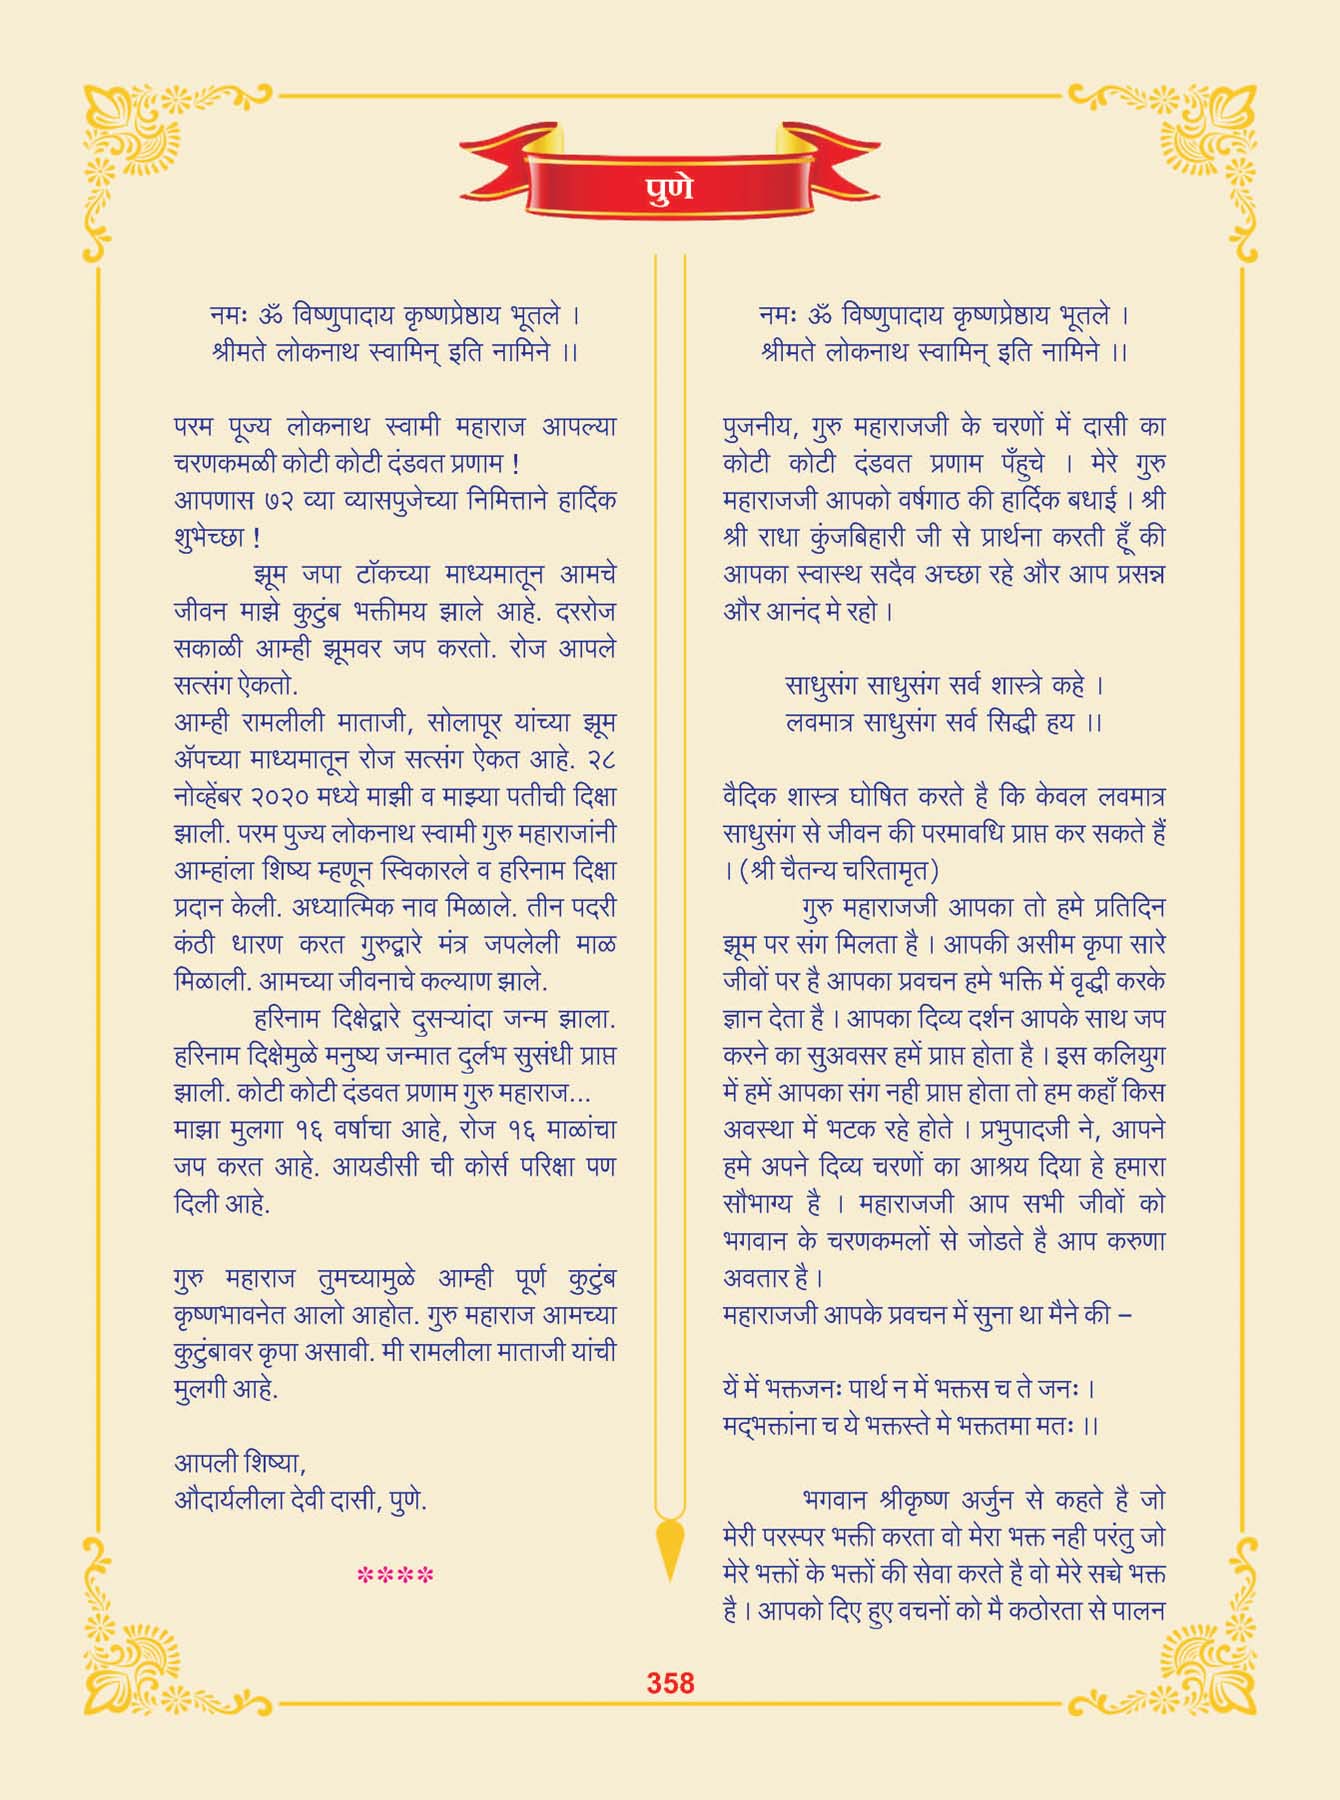 पुणे
नमः ॐ विष्णुपादाय कृष्णप्रेष्ठाय भूतले ।
श्रीमते लोकनाथ स्वामिन् इति नामिने ।।
परम पूज्य लोकनाथ स्वामी महाराज आपल्या
चरणकमळी कोटी कोटी दंडवत प्रणाम !
आपणास ७२ व्या व्यासपुजेच्या निमित्ताने हार्दिक
शुभेच्छा !
झूम जपा टॉकच्या माध्यमातून आमचे
जीवन माझे कुटुंब भक्तीमय झाले आहे. दररोज
सकाळी आम्ही झूमवर जप करतो. रोज आपले
सत्संग ऐकतो.
आम्ही रामलीली माताजी, सोलापूर यांच्या झूम
ॲपच्या माध्यमातून रोज सत्संग ऐकत आहे. २८
नोव्हेंबर २०२० मध्ये माझी व माझ्या पतीची दिक्षा
झाली. परम पुज्य लोकनाथ स्वामी गुरु महाराजांनी
आम्हांला शिष्य म्हणून स्विकारले व हरिनाम दिक्षा
प्रदान केली. अध्यात्मिक नाव मिळाले. तीन पदरी
कंठी धारण करत गुरुद्वारे मंत्र जपलेली माळ
मिळाली. आमच्या जीवनाचे कल्याण झाले.
हरिनाम दिक्षेद्वारे दुसऱ्यांदा जन्म झाला.
हरिनाम दिक्षेमुळे मनुष्य जन्मात दुर्लभ सुसंधी प्राप्त
झाली. कोटी कोटी दंडवत प्रणाम गुरु महाराज...
माझा मुलगा १६ वर्षाचा आहे, रोज १६ माळांचा
जप करत आहे. आयडीसी ची कोर्स परिक्षा पण
दिली आहे.
गुरु महाराज तुमच्यामुळे आम्ही पूर्ण कुटुंब
कृष्णभावनेत आलो आहोत. गुरु महाराज आमच्या
कुटुंबावर कृपा असावी. मी रामलीला माताजी यांची
मुलगी आहे.
आपली शिष्या,
औदार्यलीला देवी दासी, पुणे.
****
नमः ॐ विष्णुपादाय कृष्णप्रेष्ठाय भूतले ।
श्रीमते लोकनाथ स्वामिन् इति नामिने ।।
पुजनीय, गुरु महाराजजी के चरणों में दासी का
कोटी कोटी दंडवत प्रणाम पँहुचे । मेरे गुरु
महाराजजी आपको वर्षगाठ की हार्दिक बधाई । श्री
श्री राधा कुंजबिहारी जी से प्रार्थना करती हूँ की
आपका स्वास्थ सदैव अच्छा रहे और आप प्रसन्न
और आनंद मे रहो ।
साधुसंग साधुसंग सर्व शास्त्रे कहे ।
लवमात्र साधुसंग सर्व सिद्धी हय ।।
वैदिक शास्त्र घोषित करते है कि केवल लवमात्र
साधुसंग से जीवन की परमावधि प्राप्त कर सकते हैं
। (श्री चैतन्य चरितामृत)
गुरु महाराजजी आपका तो हमे प्रतिदिन
झूम पर संग मिलता है । आपकी असीम कृपा सारे
जीवों पर है आपका प्रवचन हमे भक्ति में वृद्धी करके
ज्ञान देता है । आपका दिव्य दर्शन आपके साथ जप
करने का सुअवसर हमें प्राप्त होता है । इस कलियुग
में हमें आपका संग नही प्राप्त होता तो हम कहाँ किस
अवस्था में भटक रहे होते । प्रभुपादजी ने, आपने
हमे अपने दिव्य चरणों का आश्रय दिया हे हमारा
सौभाग्य है । महाराजजी आप सभी जीवों को
भगवान के चरणकमलों से जोडते है आप करुणा
अवतार है ।
महाराजजी आपके प्रवचन में सुना था मैने की –
यें में भक्तजनः पार्थ न में भक्तस च ते जनः ।
मद्‌भक्तांना च ये भक्तस्ते मे भक्ततमा मतः ।।
भगवान श्रीकृष्ण अर्जुन से कहते है जो
मेरी परस्पर भक्ती करता वो मेरा भक्त नही परंतु जो
मेरे भक्तों के भक्तों की सेवा करते है वो मेरे सच्चे भक्त
है । आपको दिए हुए वचनों को मै कठोरता से पालन
358